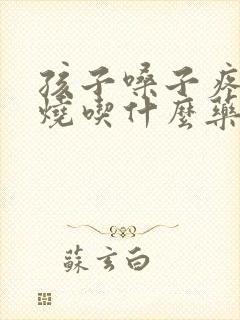 孩子嗓子疼
燒喫什麼藥
蘇玄白